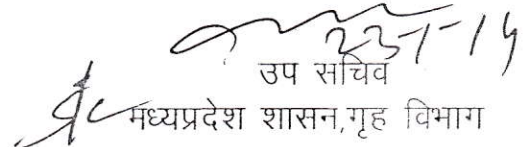 उप सचिव
मध्यप्रदेश शासन,गृह विभाग